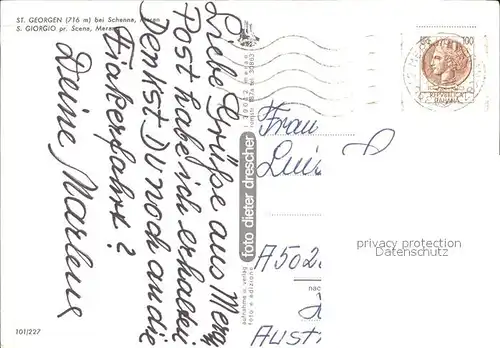 ST. GEORGEN (716 m) bei Schenna, Meran
S. GIORGIO pr. Scena, Meran
Liebe Grüße aus Meran
Post habe ich erhalten
Denkst Du noch an die
Fiakerfahrt?
Deine Marlene
foto dieter drescher
aufnahme u. verlag
foto e edizione
100
REPUBBLICA
ITALIANA
Frau
Luis
A 502
nac
Aust
privacy protection
Datenschutz
101/227